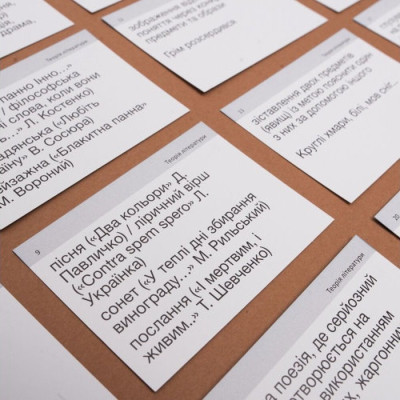 драма,
9
зображення від
поняття через кон
предмети та образи
Грім розсердився.
Теорія літератури
(«Панно Інно...»
/ філософська
слова, коли вони
...» Л. Костенко)
(«Любіть
В. Сосюра)
(«Блакитна панна»
М. Вороний)
11
Теорія літератури
зіставлення двох предметів
(явищ) із метою пояснити один
з них за допомогою іншого
Круглі хмари, білі, мов сніг.
9
Теорія літератури
пісня («Два кольори» Д.
Павличко) / ліричний вірш
(«Contra spem spero» Л.
Українка)
сонет («У теплі дні збирання
винограду...» М. Рильський)
послання («І мертвим, і
живим..» Т. Шевченко)
20
Теорія літератури
поезія, де серйозний
творюється на
використанням
жаргонни